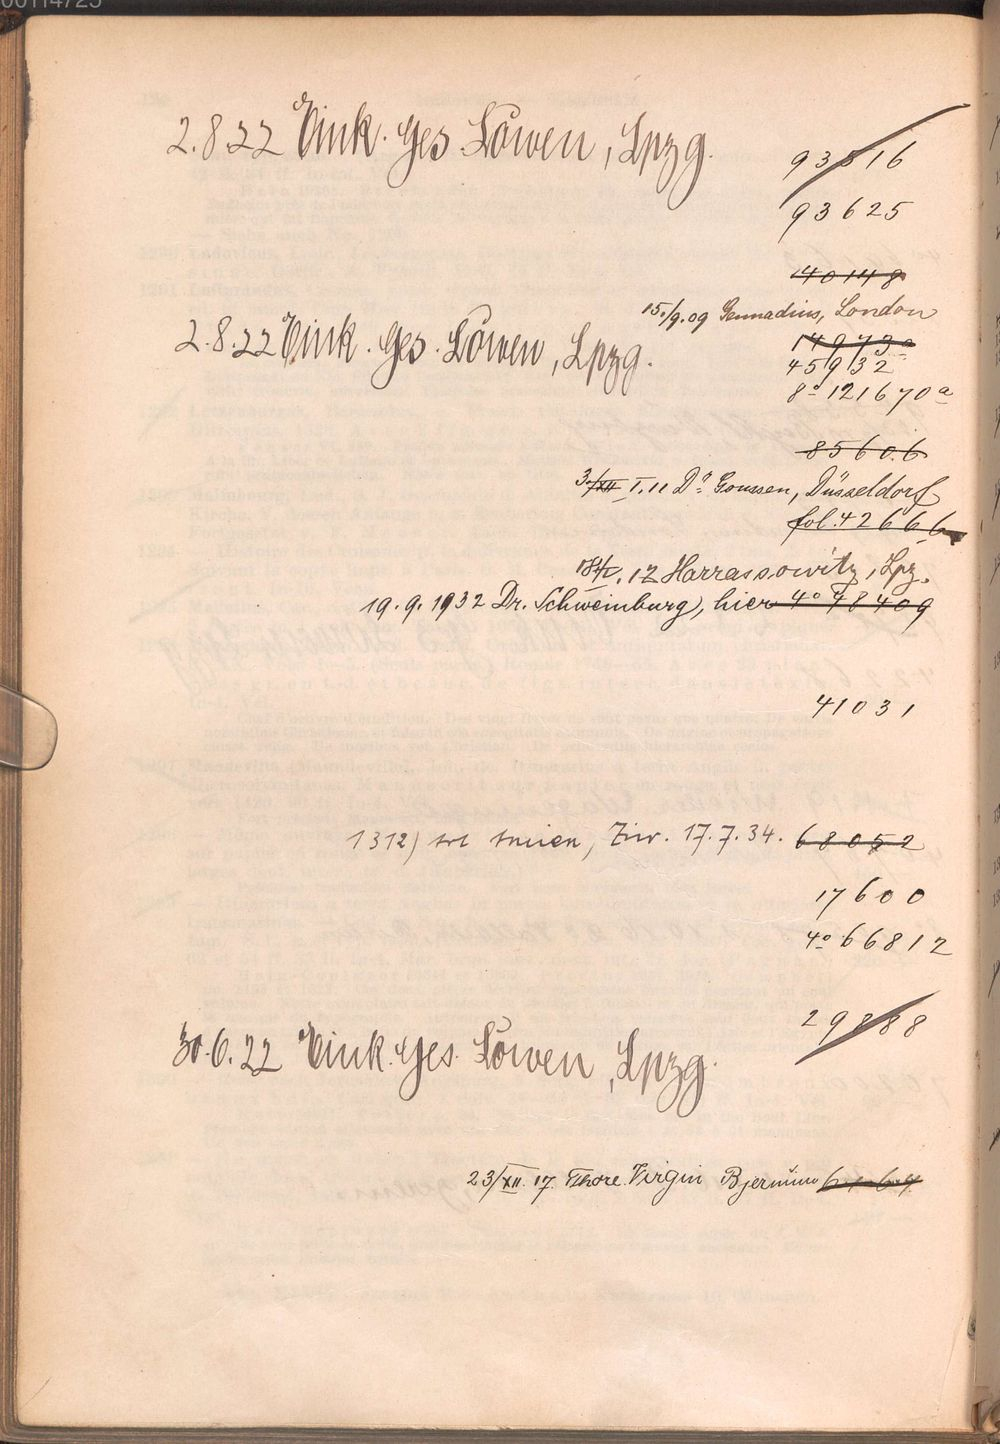 00114725
2.8.22 Eink. Ges. Löwen, Lpzg.
93816
93625
40148
15./9.09 Gennadius, London
14973a
2.8.22 Eink. Ges. Löwen, Lpzg.
45932
8° 121670a
85606
3./XII I.11 Dr. Goussen, Düsseldorf
fol. 42666
.12 Harrassowitz, Lpz.
19.9.1932 Dr. Schweinburg, hier 4° 48409
41031
1312) 17.7.34. 68052
17600
4° 66812
29888
30.6.22 Eink. Ges. Löwen, Lpzg.
23/XII. 17. Thore Virgin